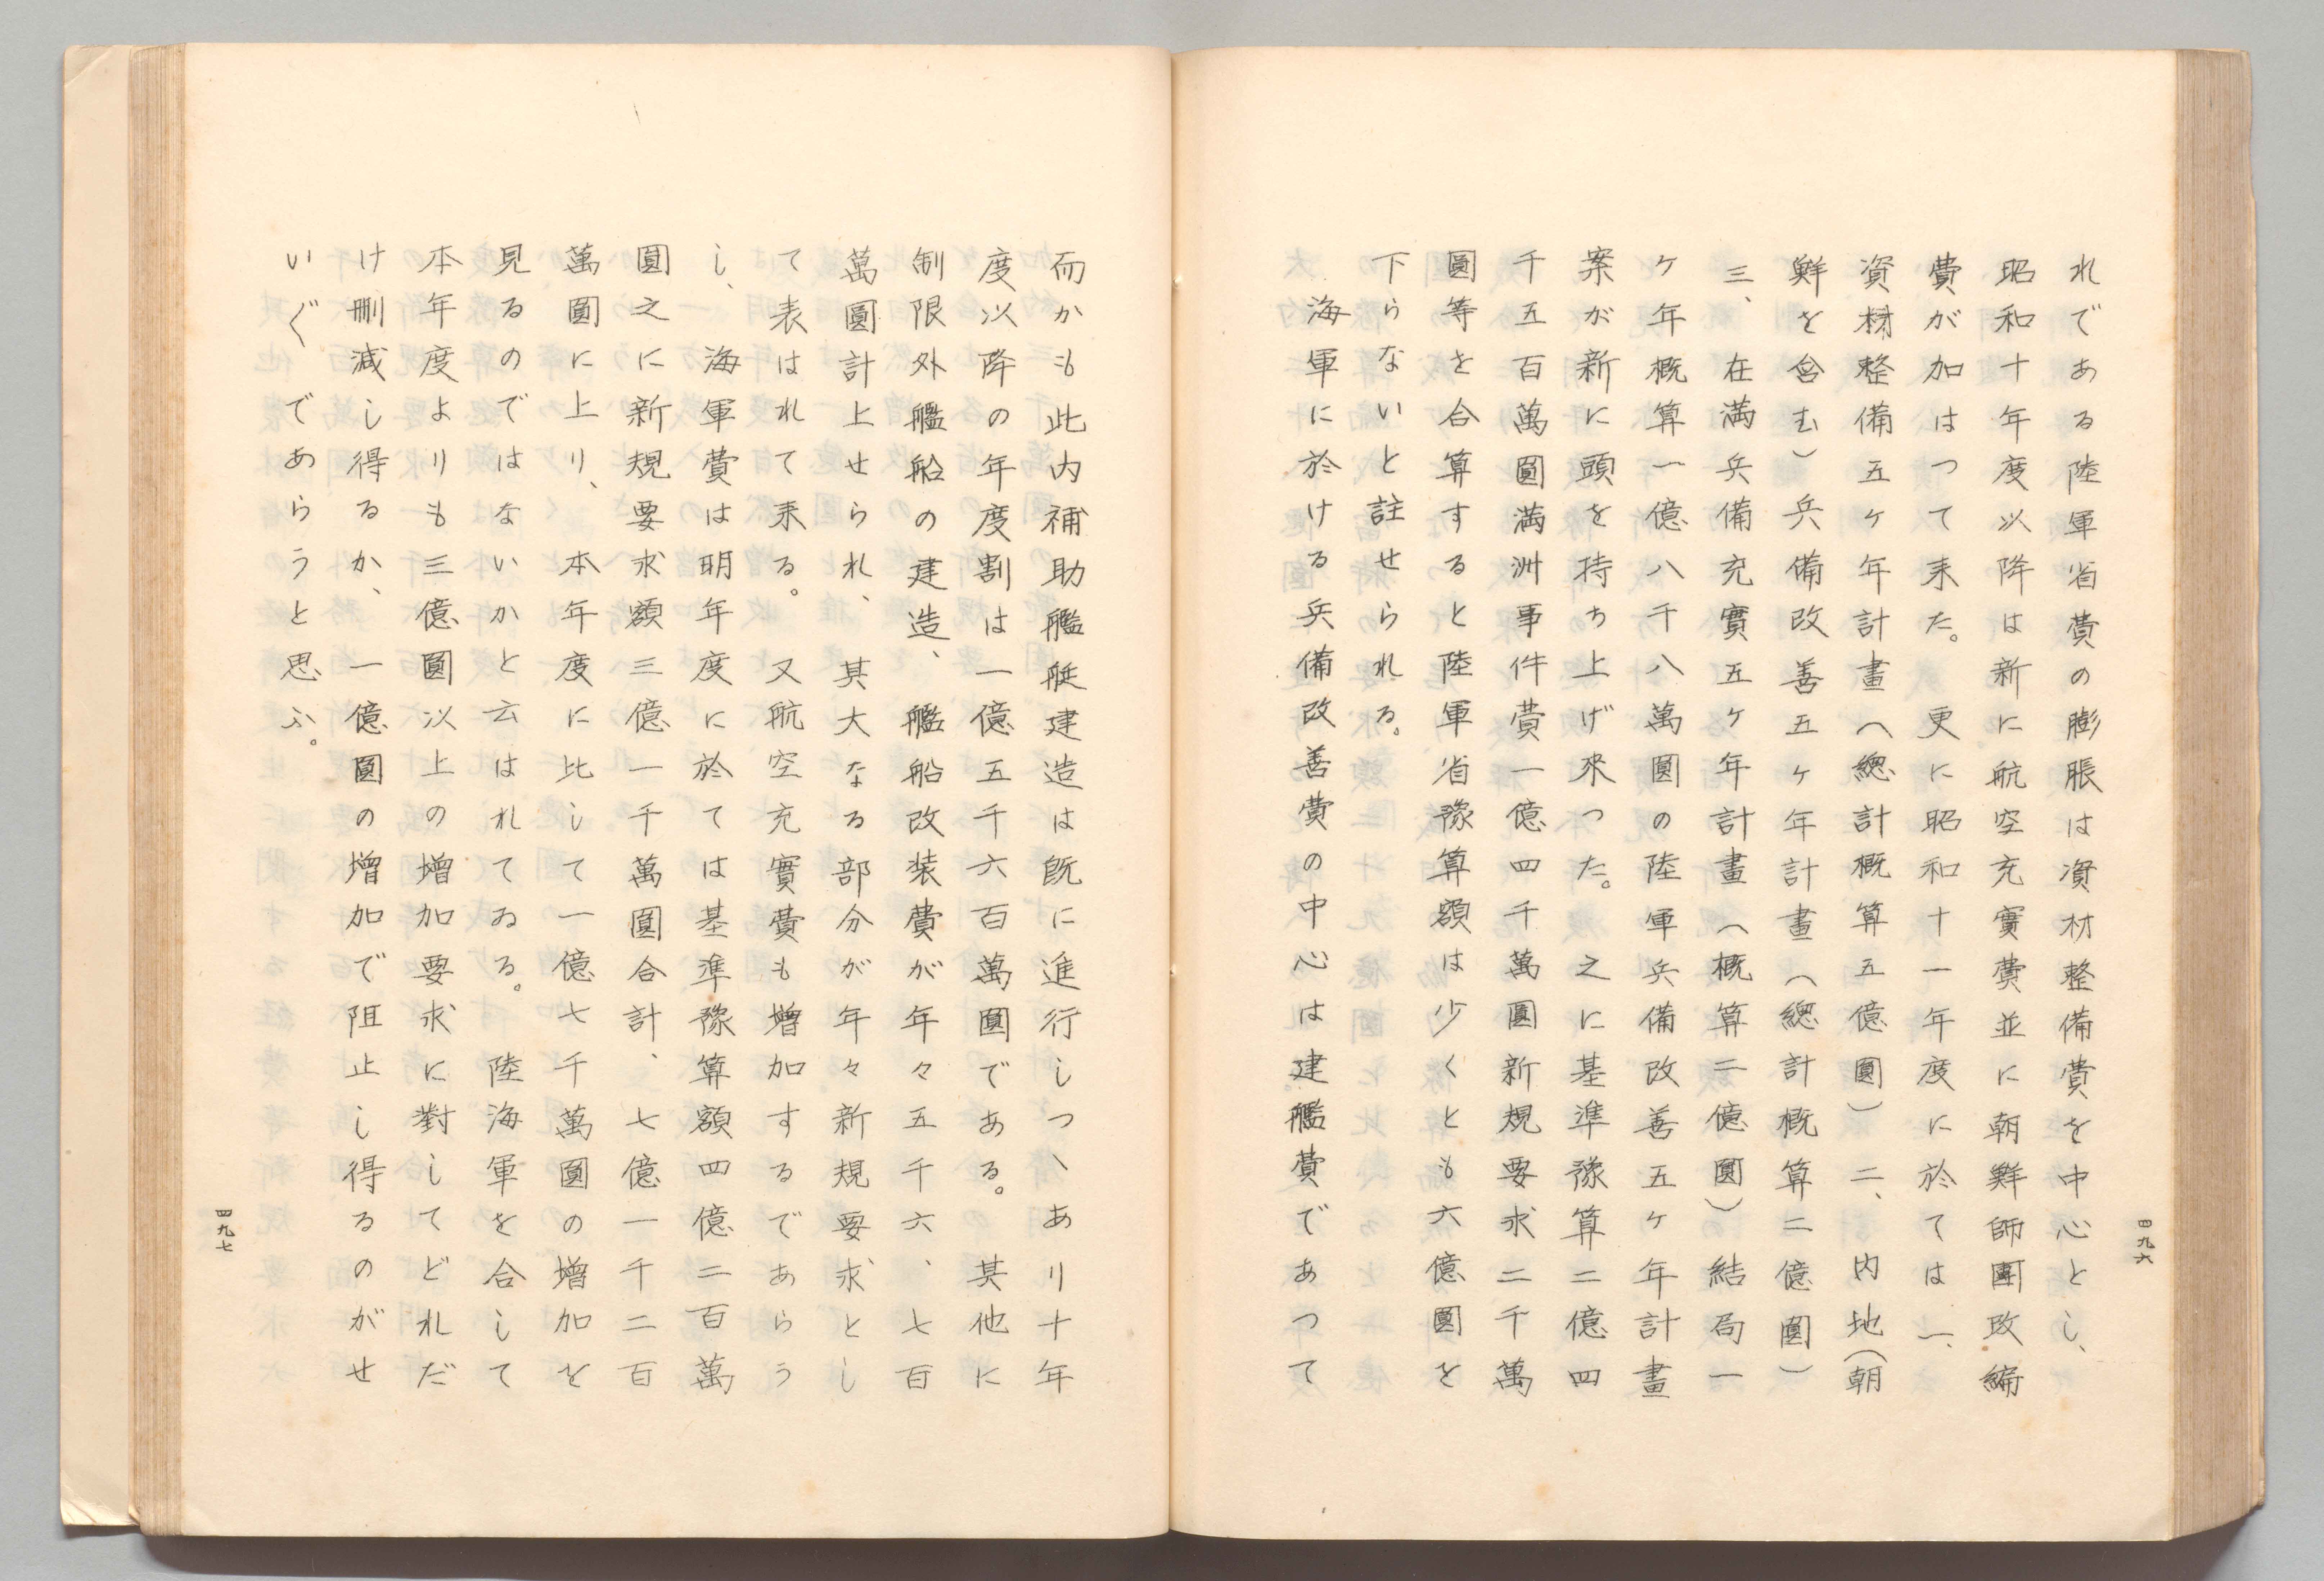 四九六
れである陸軍省費の膨脹は資材整備費を中心とし、
昭和十年度以降は新に航空充實費並に朝鮮師團改編
費が加はつて来た。更に昭和十一年度に於ては一、
資材整備五ヶ年計畫（總計概算五億圓）二、内地（朝
鮮を含む）兵備改善五ヶ年計畫（總計概算二億圓）
三、在満兵備充實五ヶ年計畫（概算二億圓）結局一
ヶ年概算一億八千八萬圓の陸軍兵備改善五ヶ年計畫
案が新に頭を持ち上げ來つた。之に基準豫算二億四
千五百萬圓満洲事件費一億四千萬圓新規要求二千萬
圓等を合算すると陸軍省豫算額は少くとも六億圓を
下らないと註せられる。
海軍に於ける兵備改善費の中心は建艦費であつて
而かも此内補助艦艇建造は既に進行しつゝあり十年
度以降の年度割は一億五千六百萬圓である。其他に
制限外艦船の建造、艦船改装費が年々五千六、七百
萬圓計上せられ、其大なる部分が年々新規要求とし
て表はれて来る。又航空充實費も増加するであらう
し、海軍費は明年度に於ては基準豫算額四億二百萬
圓之に新規要求額三億一千萬圓合計、七億一千二百
萬圓に上り、本年度に比して一億七千萬圓の増加を
見るのではないかと云はれてゐる。陸海軍を合して
本年度よりも三億圓以上の増加要求に對してどれだ
け削減し得るか、一億圓の増加で阻止し得るのがせ
いぐであらうと思ふ。
四九七